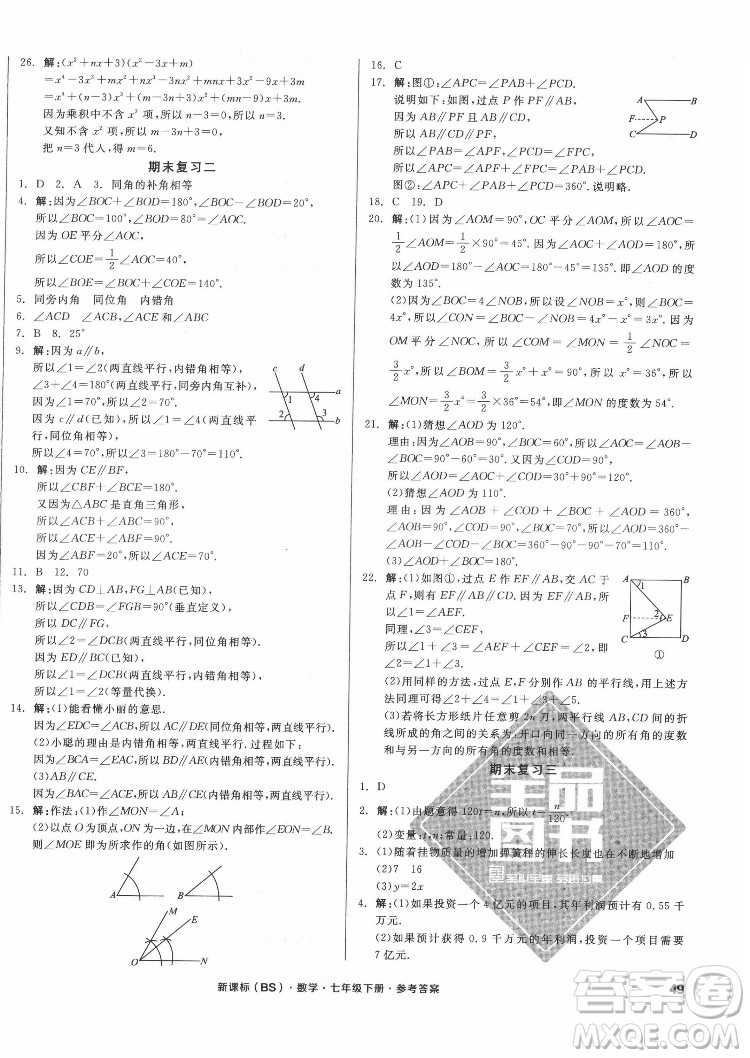 26. 解:(x²+nx+3)(x²-3x+m)
=x⁴-3x³+mx²+nx³-3nx²+mnx+3x²-9x+3m
=x⁴+(n-3)x³+(m-3n+3)x²+(mn-9)x+3m.
因为乘积中不含 x³ 项,所以 n-3=0,所以 n=3.
又知不含 x² 项,所以 m-3n+3=0,
把 n=3 代人,得 m=6.
期末复习二
1. D 2. A 3. 同角的补角相等
4. 解:因为∠BOC+∠BOD=180°,∠BOC-∠BOD=20°,
所以∠BOC=100°,∠BOD=80°,所以∠AOC=80°.
因为 OE 平分∠AOC,
所以∠COE=1/2∠AOC=40°,
所以∠BOE=∠BOC+∠COE=140°.
5. 同旁内角 同位角 内错角
6. ∠ACD ∠ACD、∠ACE 和∠ABC
7. B 8. 25°
9. 解:因为 a∥b,
所以∠1=∠2(两直线平行,内错角相等),
∠3+∠4=180°(两直线平行,同旁内角互补).
因为∠1=70°,所以∠2=70°.
因为 c∥d(已知),所以∠1=∠4(两直线平行,同位角相等),
所以∠4=70°,所以∠3=180°-∠4=180°-70°=110°.
c d a b 1 4 2 3
10. 解:因为 CE∥BF,
所以∠CBF+∠BCE=180°.
又因为△ABC 是直角三角形,
所以∠ACB+∠ABC=90°,
所以∠ACE+∠ABF=90°.
因为∠ABF=20°,所以∠ACE=70°.
11. B 12. 70
13. 解:因为 CD⊥AB,FG⊥AB(已知),
所以∠CDB=∠FGB=90°(垂直定义),
所以 DC∥FG,
所以∠2=∠DCB(两直线平行,同位角相等).
因为 ED∥BC(已知),
所以∠1=∠DCB(两直线平行,内错角相等),
所以∠1=∠2(等量代换).
14. 解:(1)能看懂小丽的意思.
因为∠DCE=∠ABC,所以 AB∥DC(同位角相等,两直线平行).
(2)小聪的理由是内错角相等,两直线平行.过程如下:
因为∠BCA=∠EAC,
所以 BD∥AE(内错角相等,两直线平行).
15. 解:作法:(1)作∠MON=∠A;
(2)以点 O 为顶点,ON 为一边,在∠MON 内作∠EON=∠B.
所以∠MOE 即为所求作的角(如图所示).
A B
M E O N
16. C
17. 解:图①:∠APC=∠PAB+∠PCD.
说明如下:如图,过点 P 作 PF∥AB,
因为 AB∥PF 且 AB∥CD,
所以 AB∥PF∥CD,
所以∠PAB=∠APF,∠PCD=∠FPC,
所以∠APC=∠PAB+∠PCD.
图②:∠APC+∠PAB+∠PCD=360°.
A B F P C D
18. C 19. D
20. 解:(1)因为∠AOM=90°,OC 平分∠AOM,所以∠AOC=
1/2∠AOM=1/2×90°=45°. 因为∠AOC+∠AOD=180°,
所以∠AOD=180°-∠AOC=180°-45°=135°,即∠AOD 的度数
为 135°.
(2)因为∠BOC=4∠NOB,所以设∠NOB=x°,∠BOC=
4x°,所以∠CON=∠BOC-∠BON=4x°-x°=3x°. 因为
OM 平分∠CON,所以∠COM=∠MON=1/2∠CON=
3/2x°. 因为∠BOM=3/2x°+x°=90°,所以 x=36,所以
∠MON=3/2x°=3/2×36°=54°,即∠MON 的度数为 54°.
21. 解:(1)猜想∠AOD=120°.
理由:因为∠BOC=60°,所以∠AOC=∠AOB-
∠BOC=30°,所以∠AOD=∠AOC+∠COD=120°.
(2)猜想∠AOD=110°.
理由:因为∠AOB+∠COD+∠BOC+∠AOD=360°,
∠AOB=∠COD=90°,∠BOC=70°,
所以∠AOD=360°-∠AOB-∠COD-∠BOC=110°.
(3)∠AOD+∠BOC=180°.
22. 解:(1)如图①,过点 E 作 EF∥AB,交 AC 于
点 F,则有 EF∥AB∥CD,
所以∠1=∠AEF.
同理,∠3=∠CEF,
所以∠1+∠3=∠AEF+∠CEF=∠2,
即∠2=∠1+∠3.
A B 1 F 2 E 3 C D
①
(2)用同样的方法,过点 E,F 分别作 AB 的平行线,可得∠1+∠3=∠2+∠4.
(3)若将长方形纸片任意剪 2n 刀,两平行线间的折
线所成的角之间的关系为:开口向同一方向的所有角的度数
和与另一方向的所有角的度数和相等.
期末复习三
1. D
2. 解:(1)由题意得 120t=n,所以 t=n/120.
(2)变量:t,n;常量:120.
3. (1)随着挂物质量的增加弹簧秤的伸长长度也不断增加.
(2)7 16
(3)y=2x
4. 解:(1)如果投资一个 4 亿元的项目,其年利润预计有 0.55 千
万元.
(2)如果预计获得 0.9 千万元的年利润,投资一个项目需要 7
亿元.
全品图书
新课标(BS)·数学·七年级下册·参考答案
49
答案卷
MXQE.COM